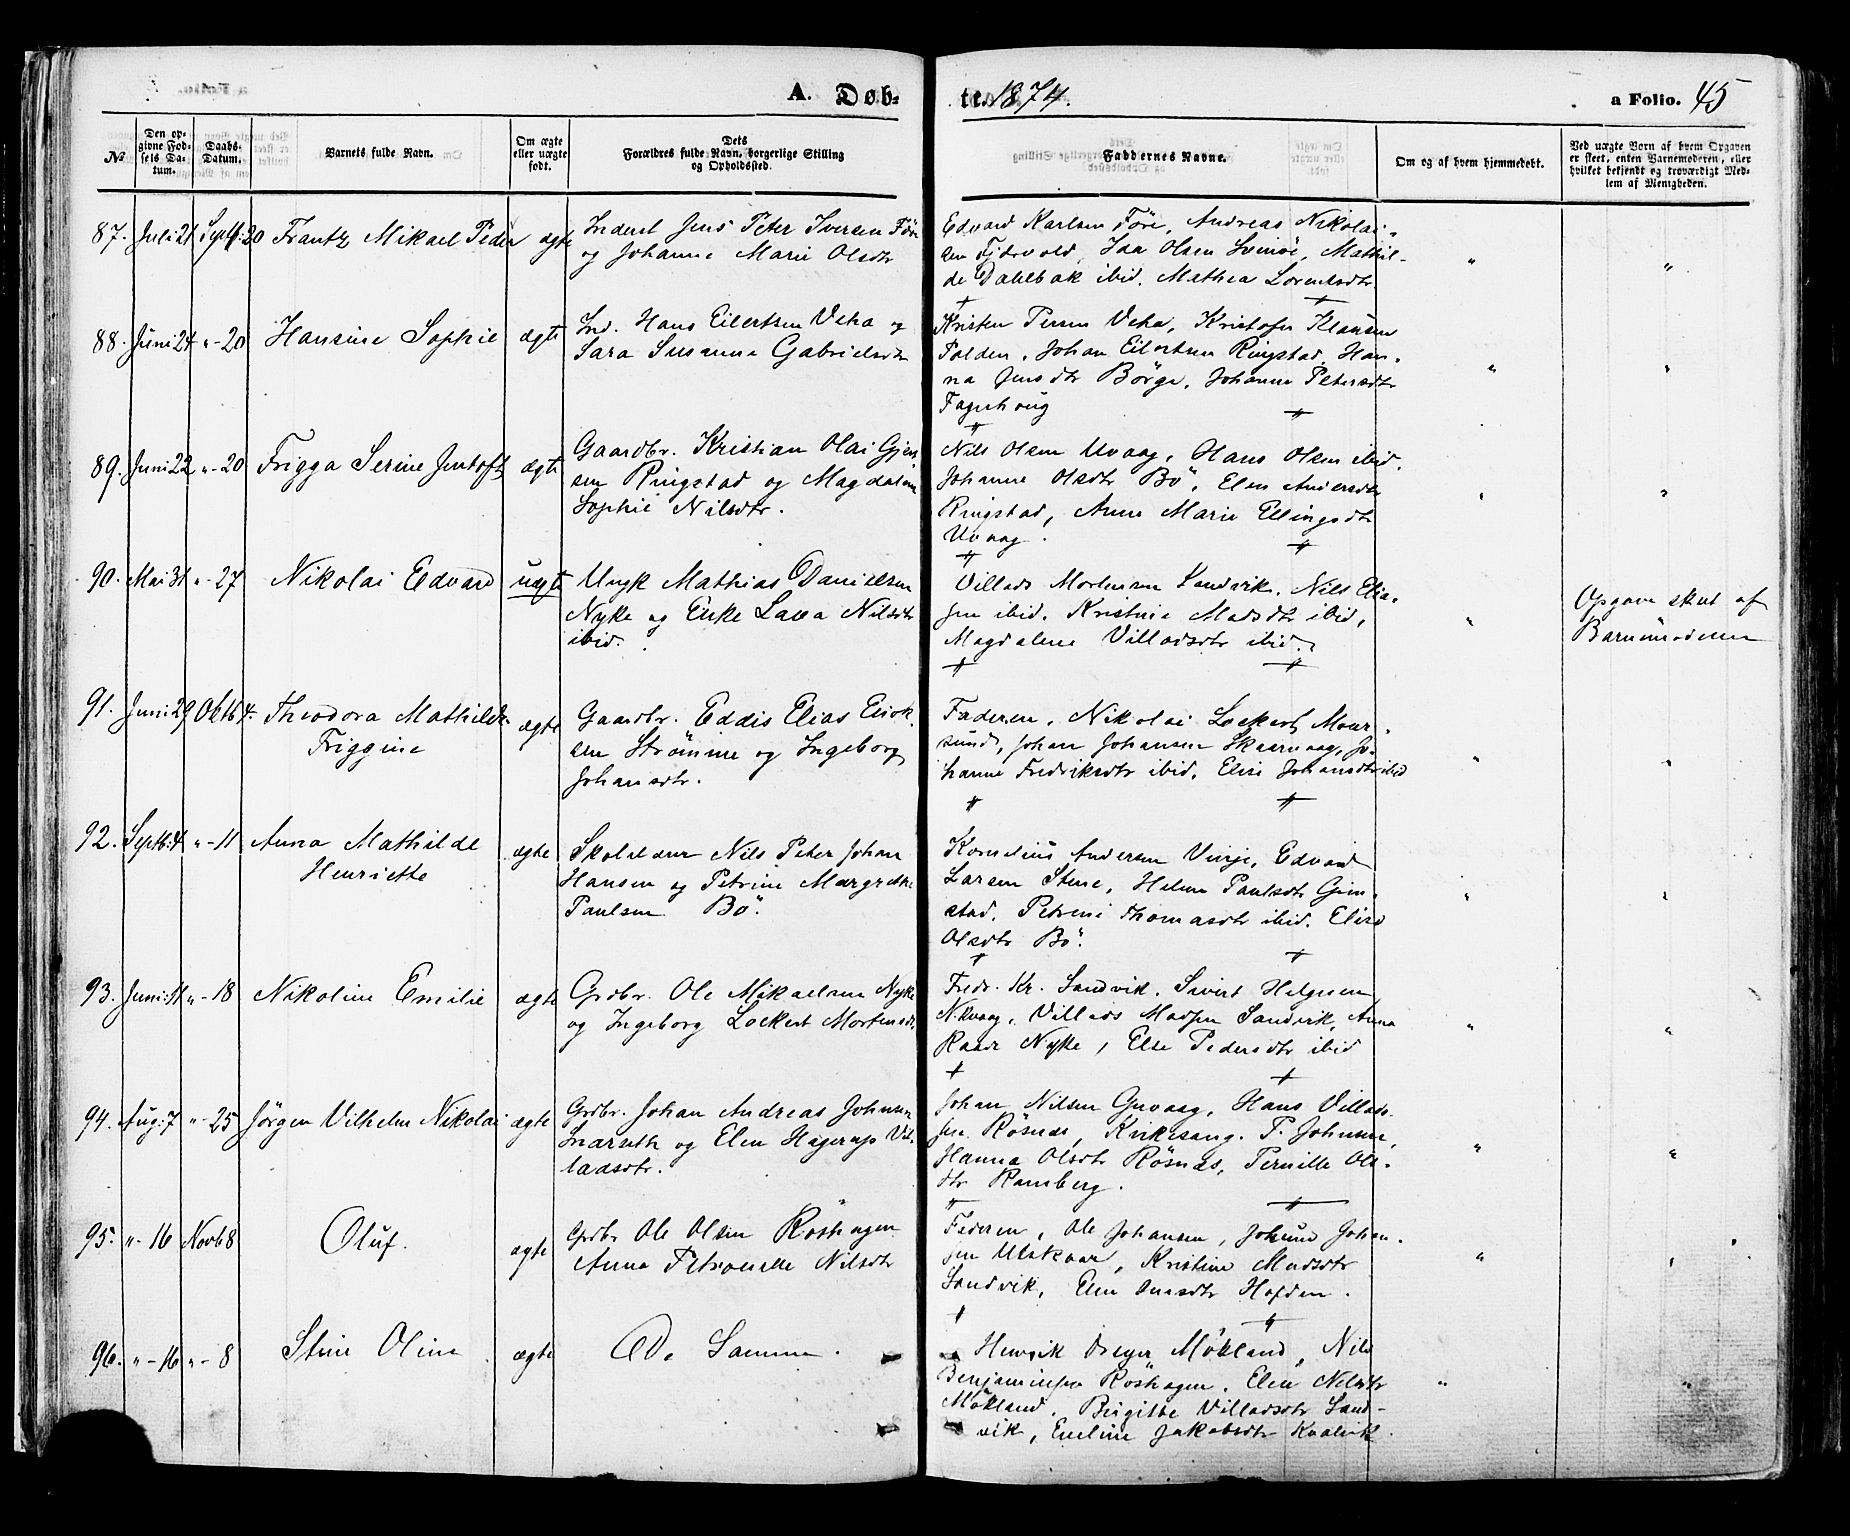 A. Døb-
te. 1874.
a Folio. 45
№
Den op-
givne Fød-
sels Da-
tum.
Daabs-
Datum.
Barnets fulde Navn.
Om ægte
eller uægte
født.
Dets
Forældres fulde Navn, borgerlige Stilling
og Opholdssted.
Faddernes Navne.
Om og af hvem hjemmedøbt.
Ved uægte Børn af hvem Opgaven
er skeet, enten Barnemoderen, eller
hvilket bekjendt og troværdigt Med-
lem af Menigheden.
87. Juli 21 Septb: 20 Frantz Mikael Peder ægte
Inderst Jens Peter Iversen Føre
og Johanne Marie Olsdtr
Edvard Karlsen Føre, Andreas Nikolai-
sen Fjærvold, Olsen Svinøe, Mathil-
de Dahlbak ibid. Mathea Lorentsdtr
88. Juni 24 "-20 Hansine Sophie ægte
Ind. Hans Eilertsen Veha og
Sara Susanne Gabrielsdtr
Kristen Persen Veha, Kristofer Klausen
Polden, Johan Eilertsen Ringstad, Han-
na Jensdtr Börge, Johanne Petersdtr
Fagerhoug
89. Juni 22 "-20 Frigga Serine Jentoft ægte
Gaardbr. Kristian Olai Gjer-
sen Ringstad og Magdalene
Sophie Nilsdtr.
Nils Olsen Uvaag, Hans Olsen ibid.
Johanne Olsdtr Bö, Elen Andersdtr
Ringstad, Anne Marie Ellingsdtr
Uvaag.
90. Mai 31 "-27 Nikolai Edvard uægt
Ungk Mathias Danielsen
Nyke og Enke Lava Nilsdtr
ibid.
Villads Mortensen Sandvik, Nils Elia-
sen ibid. Kristine Madsdtr ibid,
Magdalene Villadsdtr ibid.
Opgave skeet af
Barnemoderen
91. Juni 29 Oktb 4. Theodora Mathilde
Friggine
ægte
Gaardbr. Eddis Elias Erik-
sen Strømme og Ingeborg
Johansdtr.
Faderen, Nikolai Lockert Maur-
sund, Johan Johansen Skaarvaag, Jo-
hanne Fredriksdtr ibid, Elise Johansdtr ibid
92. Septb: 4 "-11 Anna Mathilde
Henriette
ægte
Skolelærer Nils Peter Johan
Hansen og Petrine Margrethe
Paulsen Bö.
Kornelius Andersen Vinje, Edvard
Larsen Steine, Helene Paulsdtr Gim-
stad, Petrine Thomasdtr ibid. Elise
Olsdtr Bö.
93. Juni: 11 "-18 Nikoline Emilie ægte
Grdbr. Ole Mikaelsen Nyke
og Ingeborg Lockert Mortensdtr
Fredr. Kr. Sandvik, Sivert Helgesen
Nikvaag, Villads Madsen Sandvik, Anna
Raade Nyke, Else Pedersdtr ibid
94. Aug: 7 "-25 Jörgen Vilhelm Nikolai ægte
Grdbr. Johan Andreas Johnsen
og Elen Hagerup Vil-
ladsdtr.
Johan Nilsen Guvaag, Hans Villads-
sen Rösnæs, Kirkesang. P. Johnsen,
Hanna Olsdtr Rösnæs, Pernille Ols-
dtr Ramberg.
95. "-16 Novb 8 Oluf. ægte
Grdbr Ole Olsen Röshagen
Anna Petronelle Nilsdtr
Faderen, Ole Johansen, Johan-
sen Ulvkaar, Kristine Madsdtr
Sandvik, Elen Hofden.
96. "-16 "-8 Stine Oline ægte
De Samme.
Henrik Dreyer Mökland, Nils
Benjaminsen Röshagen, Elen Nilsdtr
Mökland, Birgitte Villadsdtr Sand-
vik, Eveline Jakobsdtr Kvalvik.